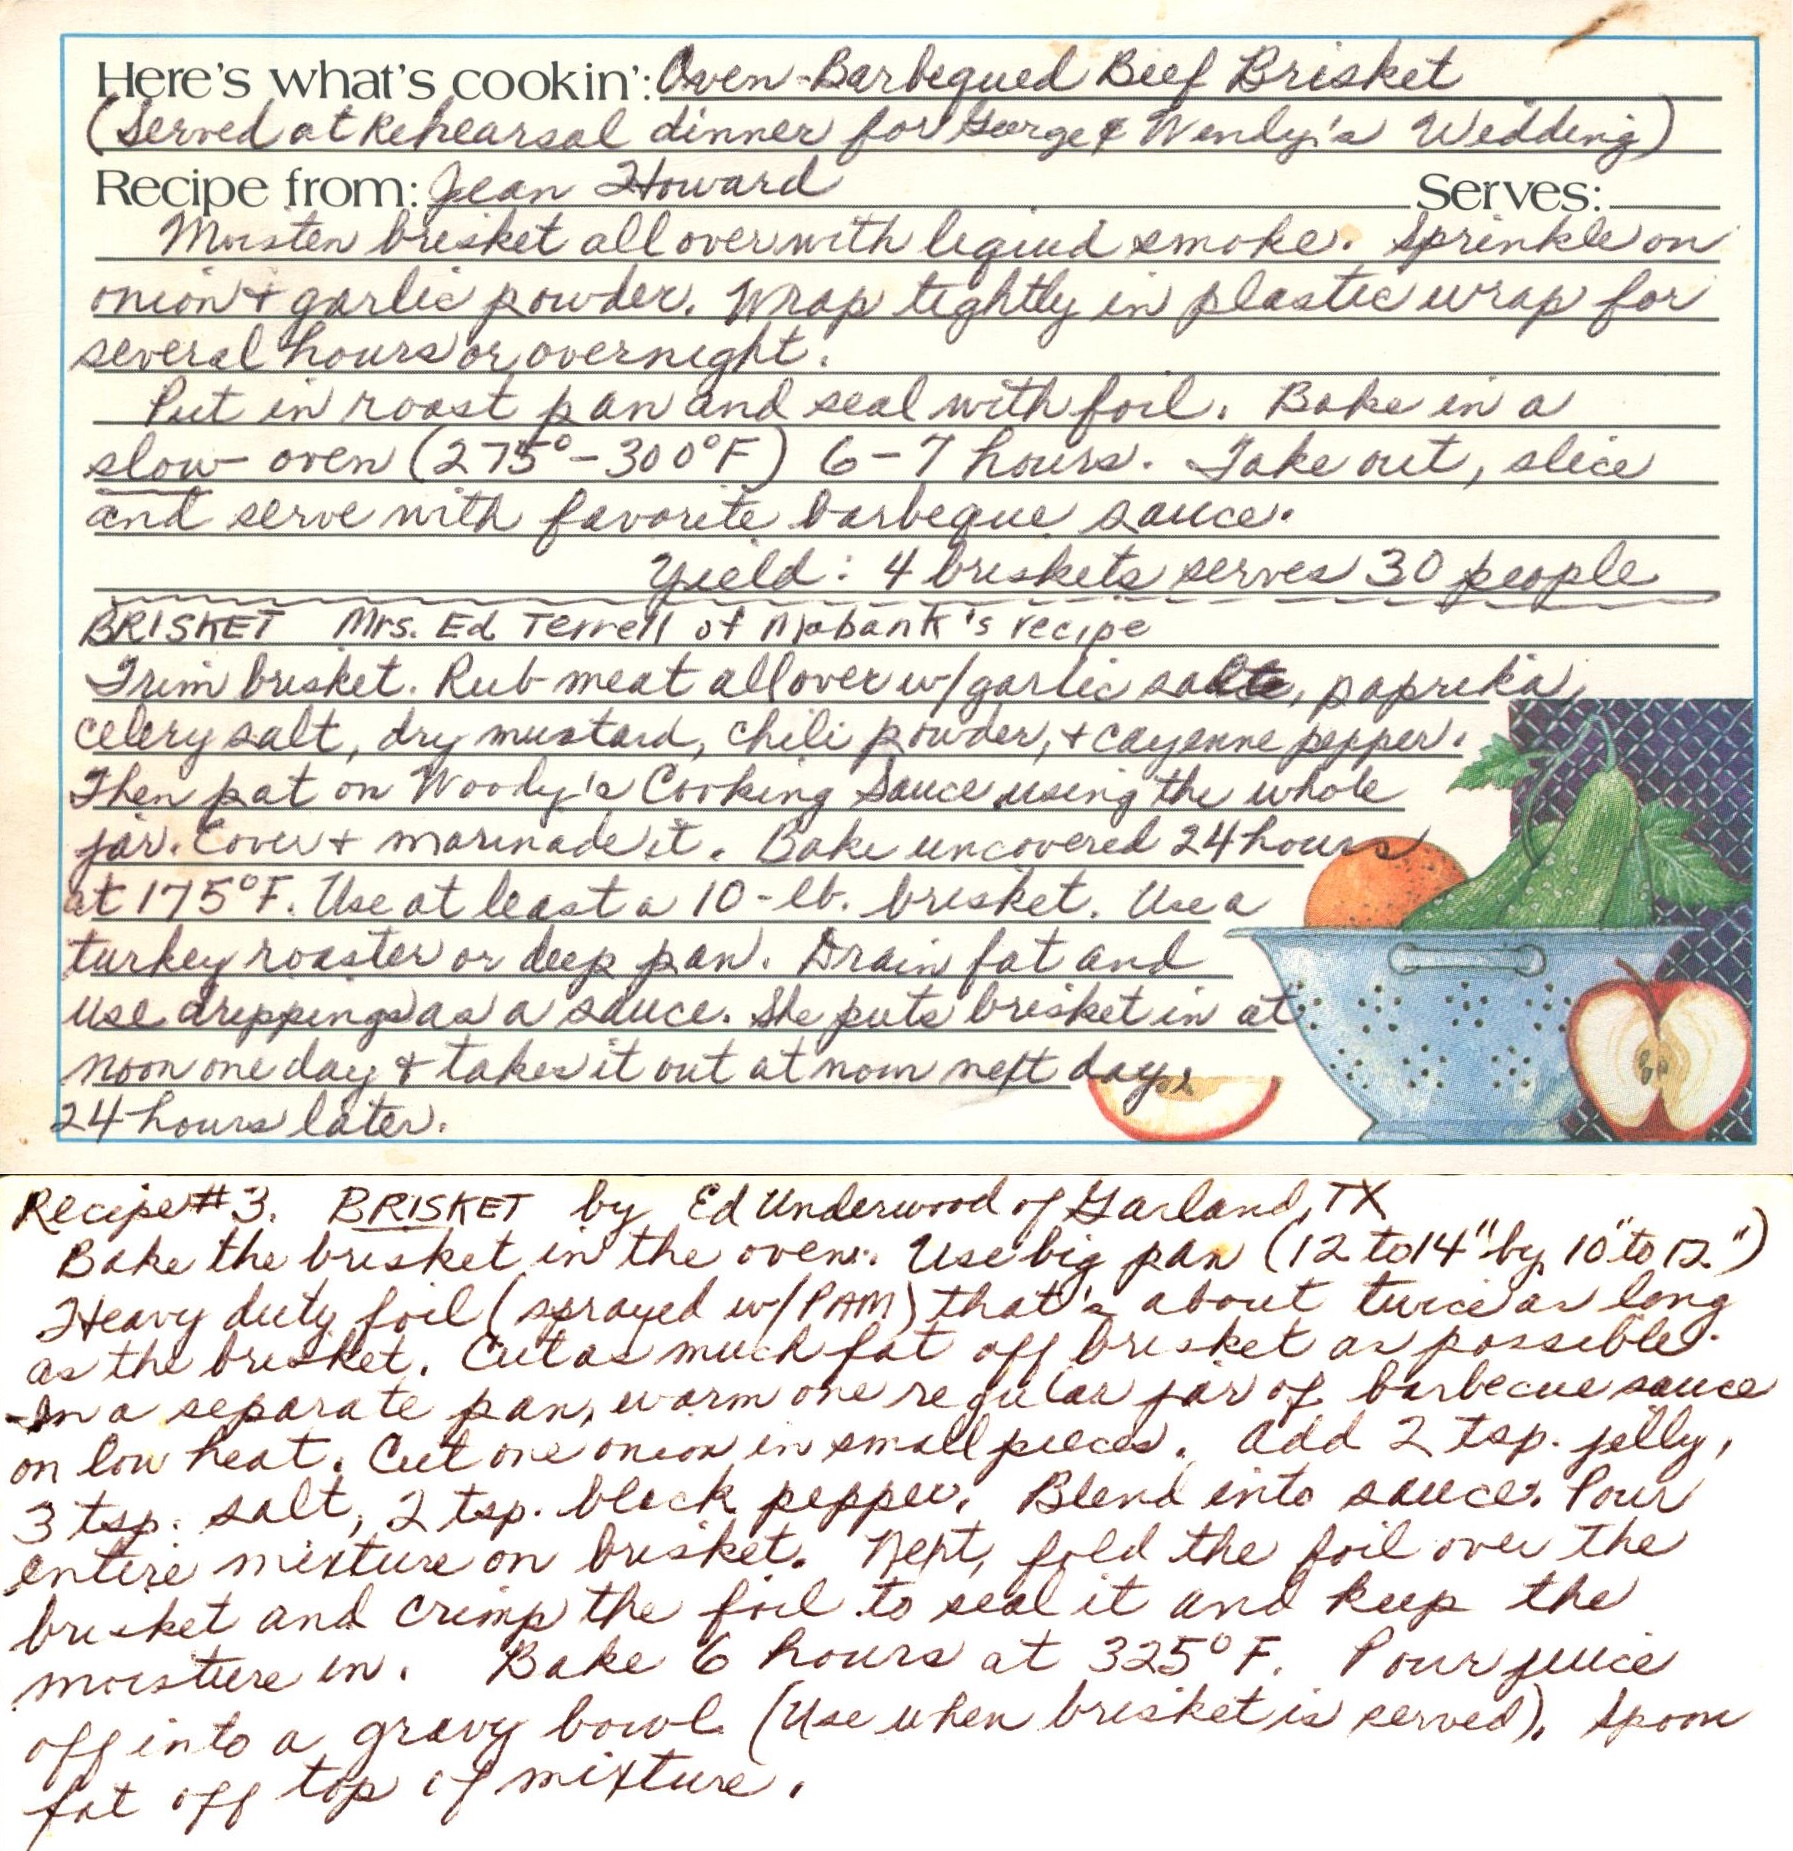 Here's what's cookin': Oven-Barbequed Beef Brisket
(Served at Rehearsal dinner for George & Wendy's Wedding)
Recipe from: Jean Howard Serves:
Moisten brisket all over with liquid smoke. Sprinkle on
onion + garlic powder. Wrap tightly in plastic wrap for
several hours or overnight.
Put in roast pan and seal with foil. Bake in a
slow oven (275°-300°F) 6-7 hours. Take out, slice
and serve with favorite barbeque sauce.
Yield: 4 briskets serves 30 people
BRISKET Mrs. Ed Terrell of Mabank's recipe
Trim brisket. Rub meat all over w/garlic salt, paprika,
celery salt, dry mustard, chili powder, + cayenne pepper.
Then pat on Woody's Cooking Sauce using the whole
jar. Cover + marinade it. Bake uncovered 24 hours
at 175°F. Use at least a 10-lb. brisket. Use a
turkey roaster or deep pan. Drain fat and
use drippings as a sauce. She puts brisket in at
noon one day + takes it out at noon next day,
24 hours later.
Recipe #3. BRISKET by Ed Underwood of Garland, TX
Bake the brisket in the oven. Use big pan (12 to 14" by 10" to 12")
Heavy duty foil (sprayed w/PAM) that's about twice as long
as the brisket. Cut as much fat off brisket as possible.
In a separate pan, warm one regular jar of barbecue sauce
on low heat. Cut one onion in small pieces. Add 2 tsp. jelly,
3 tsp. salt, 2 tsp. black pepper. Blend into sauce. Pour
entire mixture on brisket. Next, fold the foil over the
brisket and crimp the foil to seal it and keep the
moisture in. Bake 6 hours at 325°F. Pour juice
off into a gravy bowl (Use when brisket is served). Spoon
fat off top of mixture.